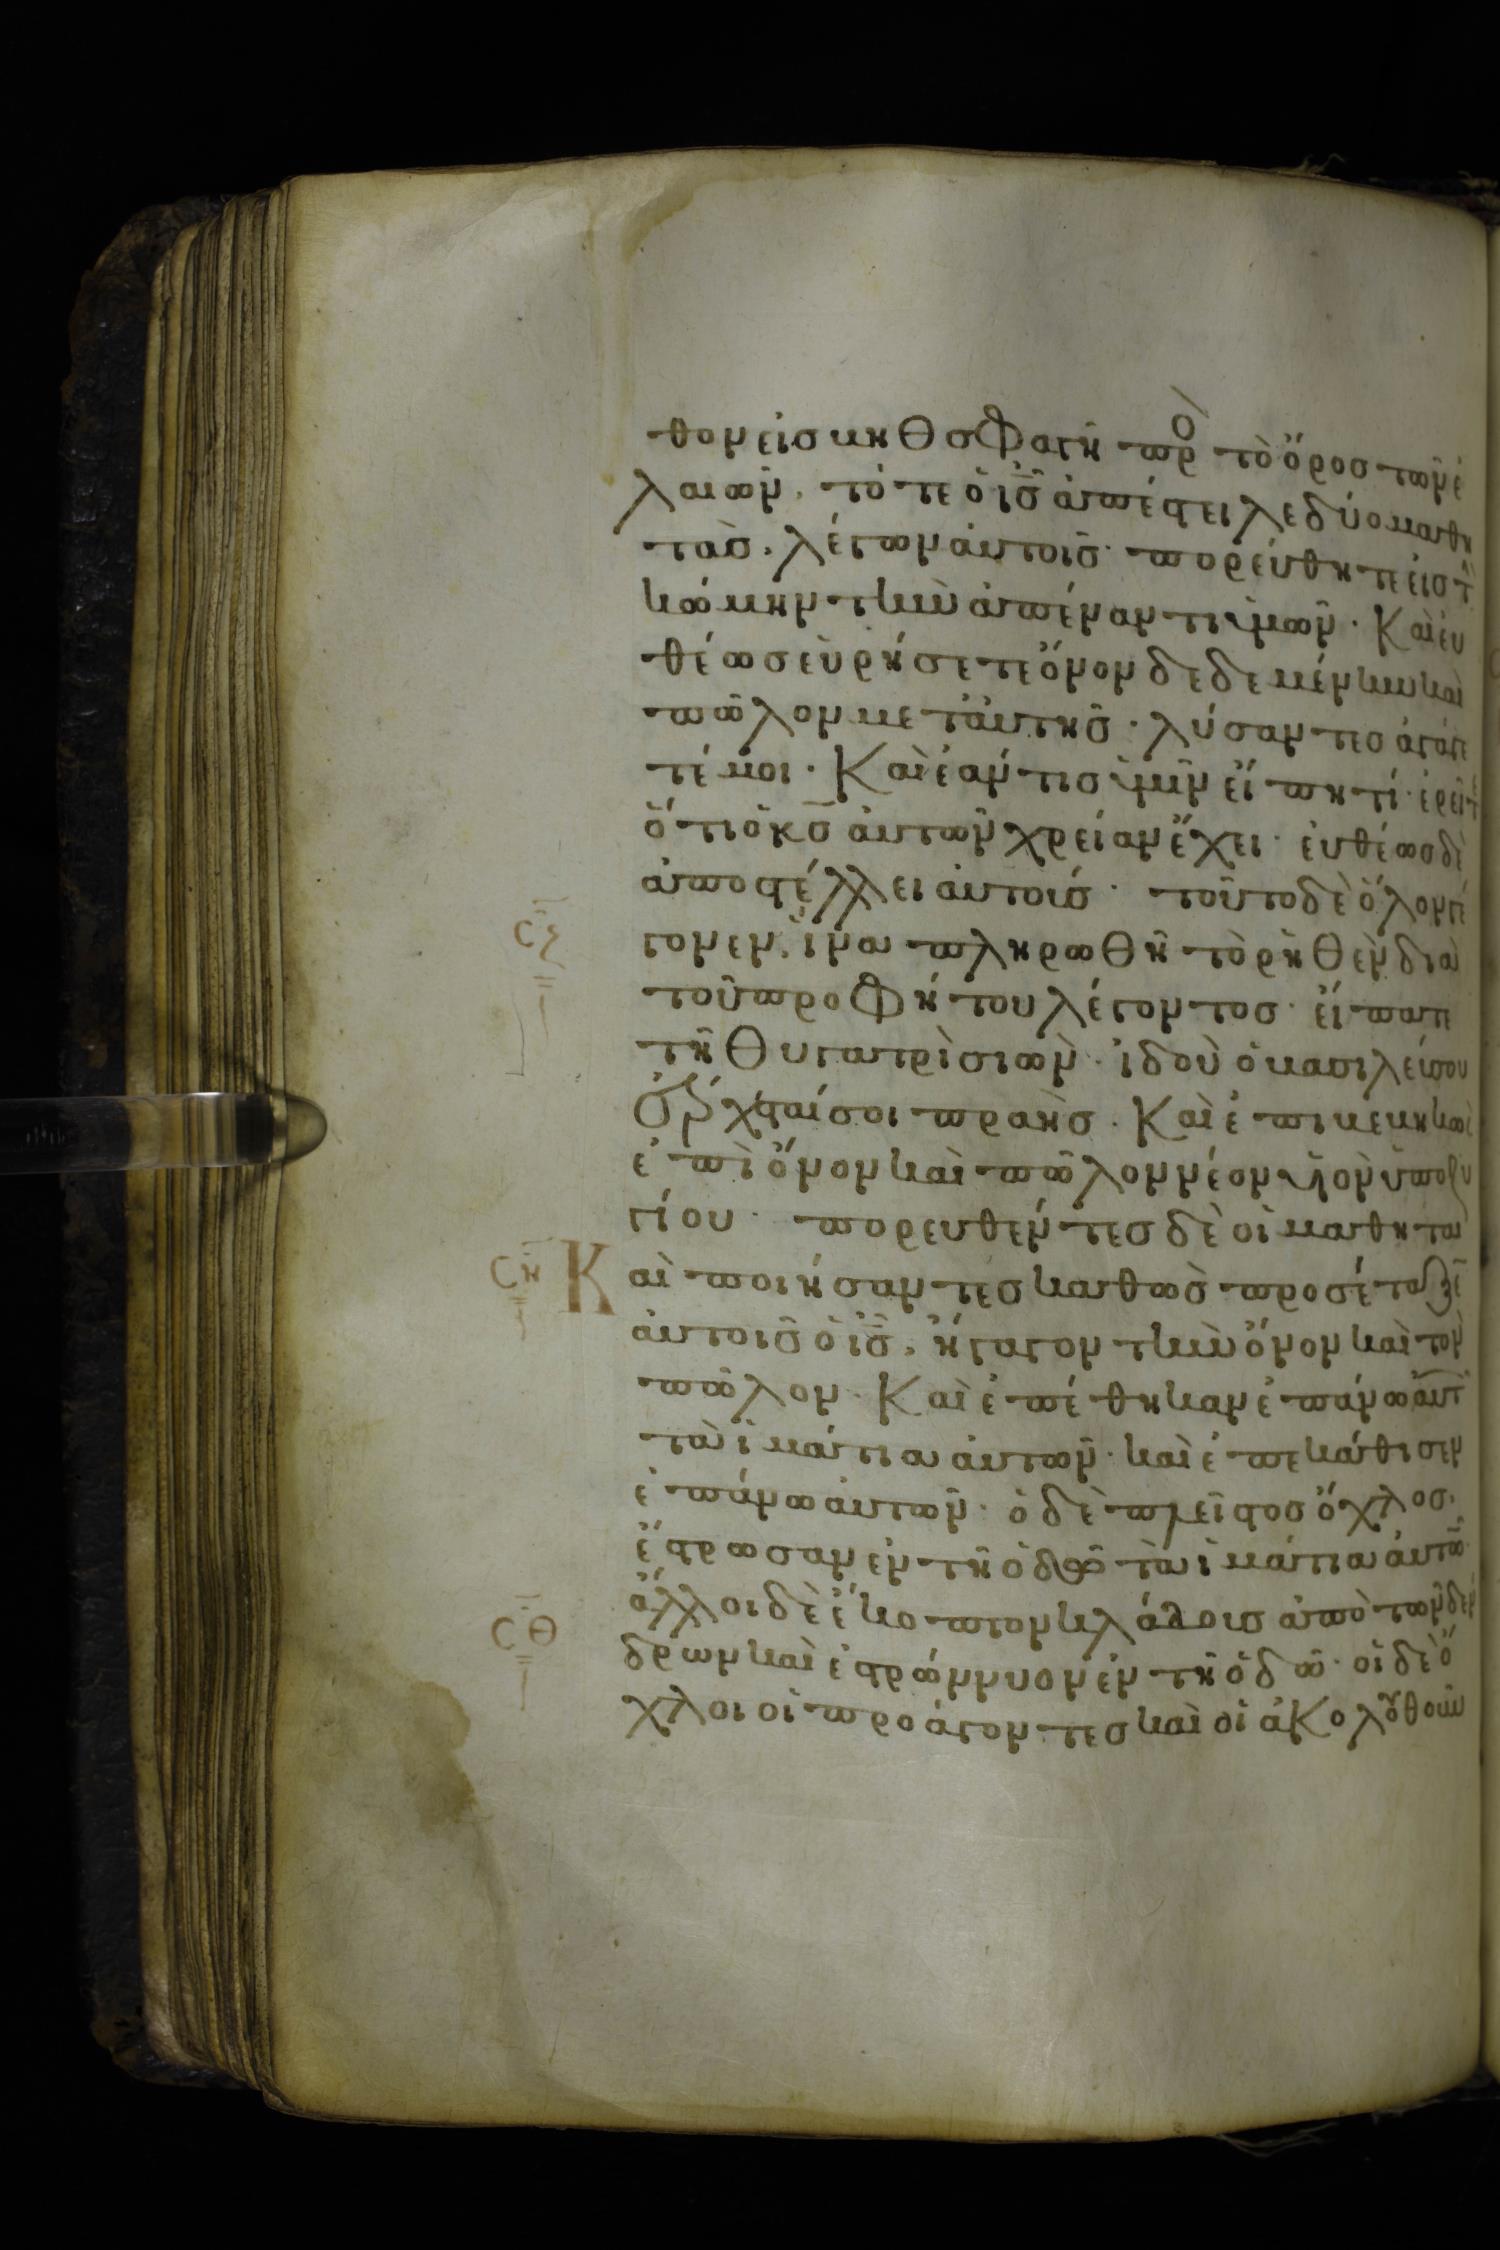 θον εἰσ μηθσφαγῆ πρὸ τὸ ὄροσ τῶν ἐ
λαιῶν, τότε ὁ ι̅σ̅ ἀπέστειλε δύο μαθη
τὰσ, λέγων αὐτοῖσ· πορεύθητε εἰσ τ̅
κώμην τὴν ἀπέναντι ὑμῶν· Καὶ εὐ
θέωσ εὑρήσετε ὄνον δεδεμένην καὶ
πῶλον μετ' αὐτῆσ· λύσαντεσ ἀγάγε
τέ μοι· Καὶ ἐάν τισ ὑμῖν εἴπη τί· ἐρεῖτε
ὅτι ὁ κ̅σ̅ αὐτῶν χρείαν ἔχει· εὐθέωσ δὲ
ἀποστέλλει αὐτούσ· τοῦτο δὲ ὅλον γέ
σζ
γονεν, ἵνα πληρωθῆ τὸ ῥηθὲν διὰ
τοῦ προφήτου λέγοντοσ· εἴπατε
τῆ θυγατρὶ σιών· ἰδοὺ ὁ βασιλεύσ σου
ἔρχεταί σοι πραῢσ· Καὶ ἐπιβεβηκὼσ
ἐπὶ ὄνον καὶ πῶλον νέον υἱὸν ὑποζυ
γίου· πορευθέντεσ δὲ οἱ μαθηταὶ
ση Καὶ ποιήσαντεσ καθὼσ προσέταξε̅
αὐτοῖσ ὁ ι̅σ̅, ἤγαγον τὴν ὄνον καὶ τὸν
πῶλον· Καὶ ἐπέθηκαν ἐπάνω αὐτῶν
τὰ ἱμάτια αὐτῶν· καὶ ἐπεκάθισεν
ἐπάνω αὐτῶν· ὁ δὲ πλεῖστοσ ὄχλοσ,
ἔστρωσαν ἐν τῆ ὁδῶ τὰ ἱμάτια αὐτῶ̅·
σθ ἄλλοι δὲ ἔκοπτον κλάδουσ ἀπὸ τῶν δέν
δρων καὶ ἐστρώννυον ἐν τῆ ὁδῶ· οἱ δὲ ὄ
χλοι οἱ προάγοντεσ καὶ οἱ ἀκολουθοῦν